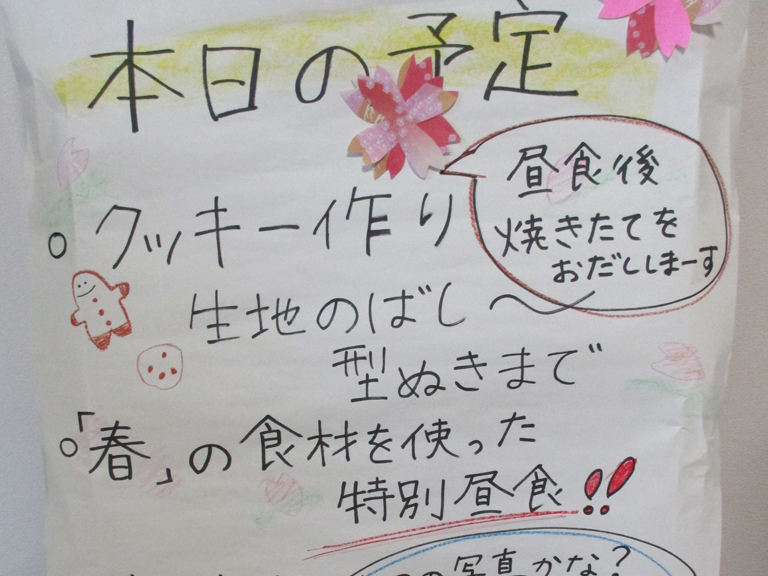 本日の予定
。クッキー作り
昼食後
焼きたてを
おだししまーす
生地のばし〜
型ぬきまで
。「春」の食材を使った
特別昼食!!
の写真かな?